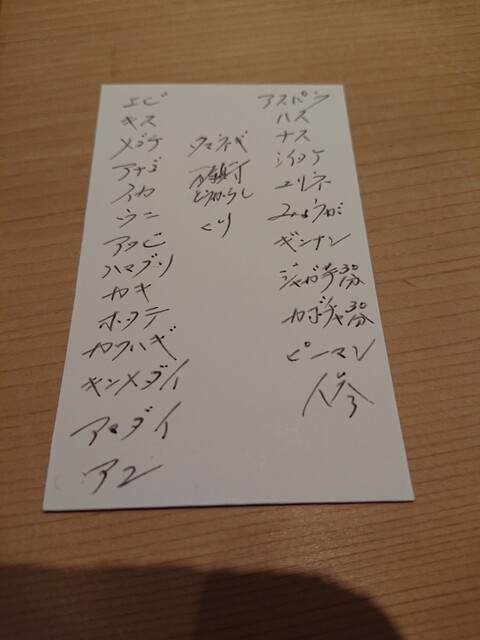 エビ
キス
メゴチ
アナゴ
イカ
ウニ
アワビ
ハマグリ
カキ
ホタテ
カワハギ
キンメダイ
アマダイ
アユ
タマネギ
とうがらし
くり
アスパラ
ハス
ナス
シイタケ
ユリネ
みょうが
ギンナン
ジャガ芋30分
カボチャ30分
ピーマン